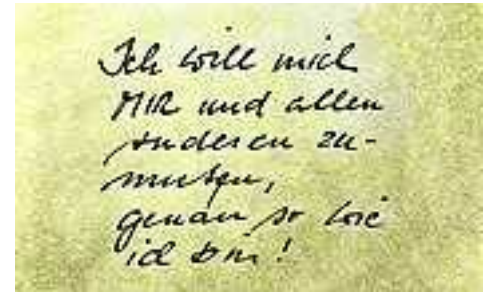 Ich will mich
MIR und allen
anderen zu-
muten,
genau so wie
ich bin!